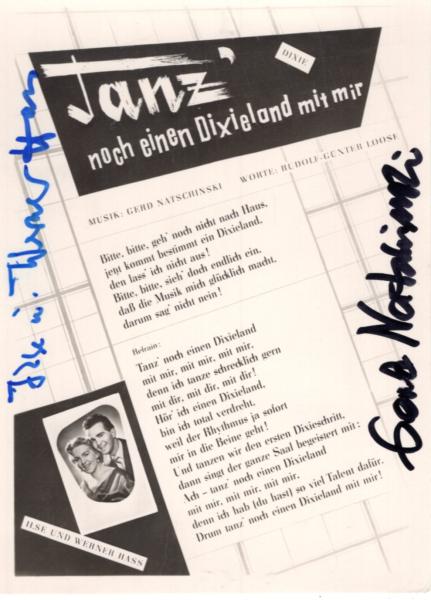 DIXIE
Tanz'
noch einen Dixieland mit mir
MUSIK: GERD NATSCHINSKI WORTE: RUDOLF-GÜNTER LOOSE
Bitte, bitte, geh' noch nicht nach Haus,
jetzt kommt bestimmt ein Dixieland,
den lass' ich nicht aus!
Bitte, bitte, sieh' doch endlich ein,
daß die Musik mich glücklich macht,
darum sag' nicht nein!
Refrain:
Tanz' noch einen Dixieland
mit mir, mit mir, mit mir,
denn ich tanze schrecklich gern
mit dir, mit dir, mit dir!
Hör' ich einen Dixieland,
bin ich total verdreht,
weil der Rhythmus ja sofort
mir in die Beine geht!
Und tanzen wir den ersten Dixieschritt,
dann singt der ganze Saal begeistert mit:
Ach – tanz' noch einen Dixieland
mit mir, mit mir, mit mir,
denn ich hab (du hast) so viel Talent dafür.
Drum tanz' noch einen Dixieland mit mir!
ILSE UND WERNER HASS
Ilse u. Werner Hass
Gerd Natschinski